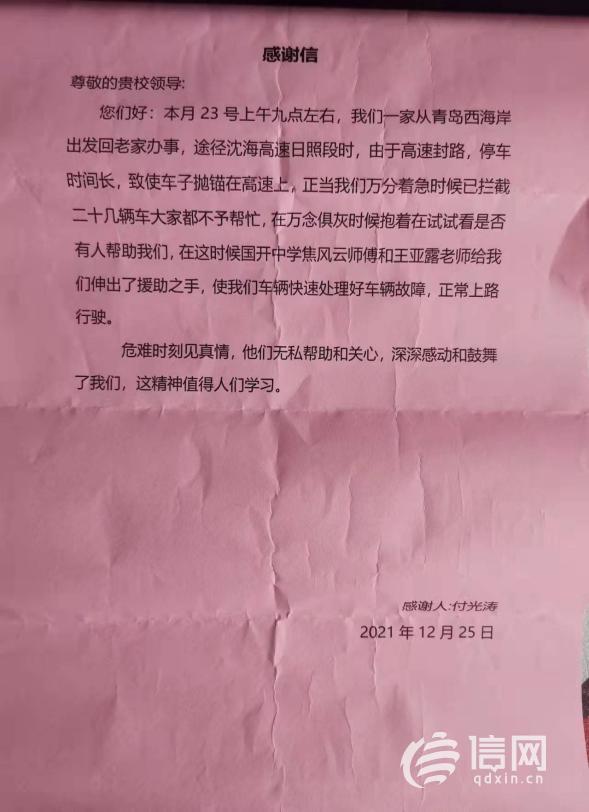 感谢信
尊敬的贵校领导:
您们好：本月23号上午九点左右，我们一家从青岛西海岸
出发回老家办事，途径沈海高速日照段时，由于高速封路，停车
时间长，致使车子抛锚在高速上，正当我们万分着急时候已拦截
二十几辆车大家都不予帮忙，在万念俱灰时候抱着在试试看是否
有人帮助我们，在这时候国开中学焦风云师傅和王亚露老师给我
们伸出了援助之手，使我们车辆快速处理好车辆故障，正常上路
行驶。
危难时刻见真情，他们无私帮助和关心，深深感动和鼓舞
了我们，这精神值得人们学习。
感谢人:付光涛
2021年12月25日
信网
qdxin.cn